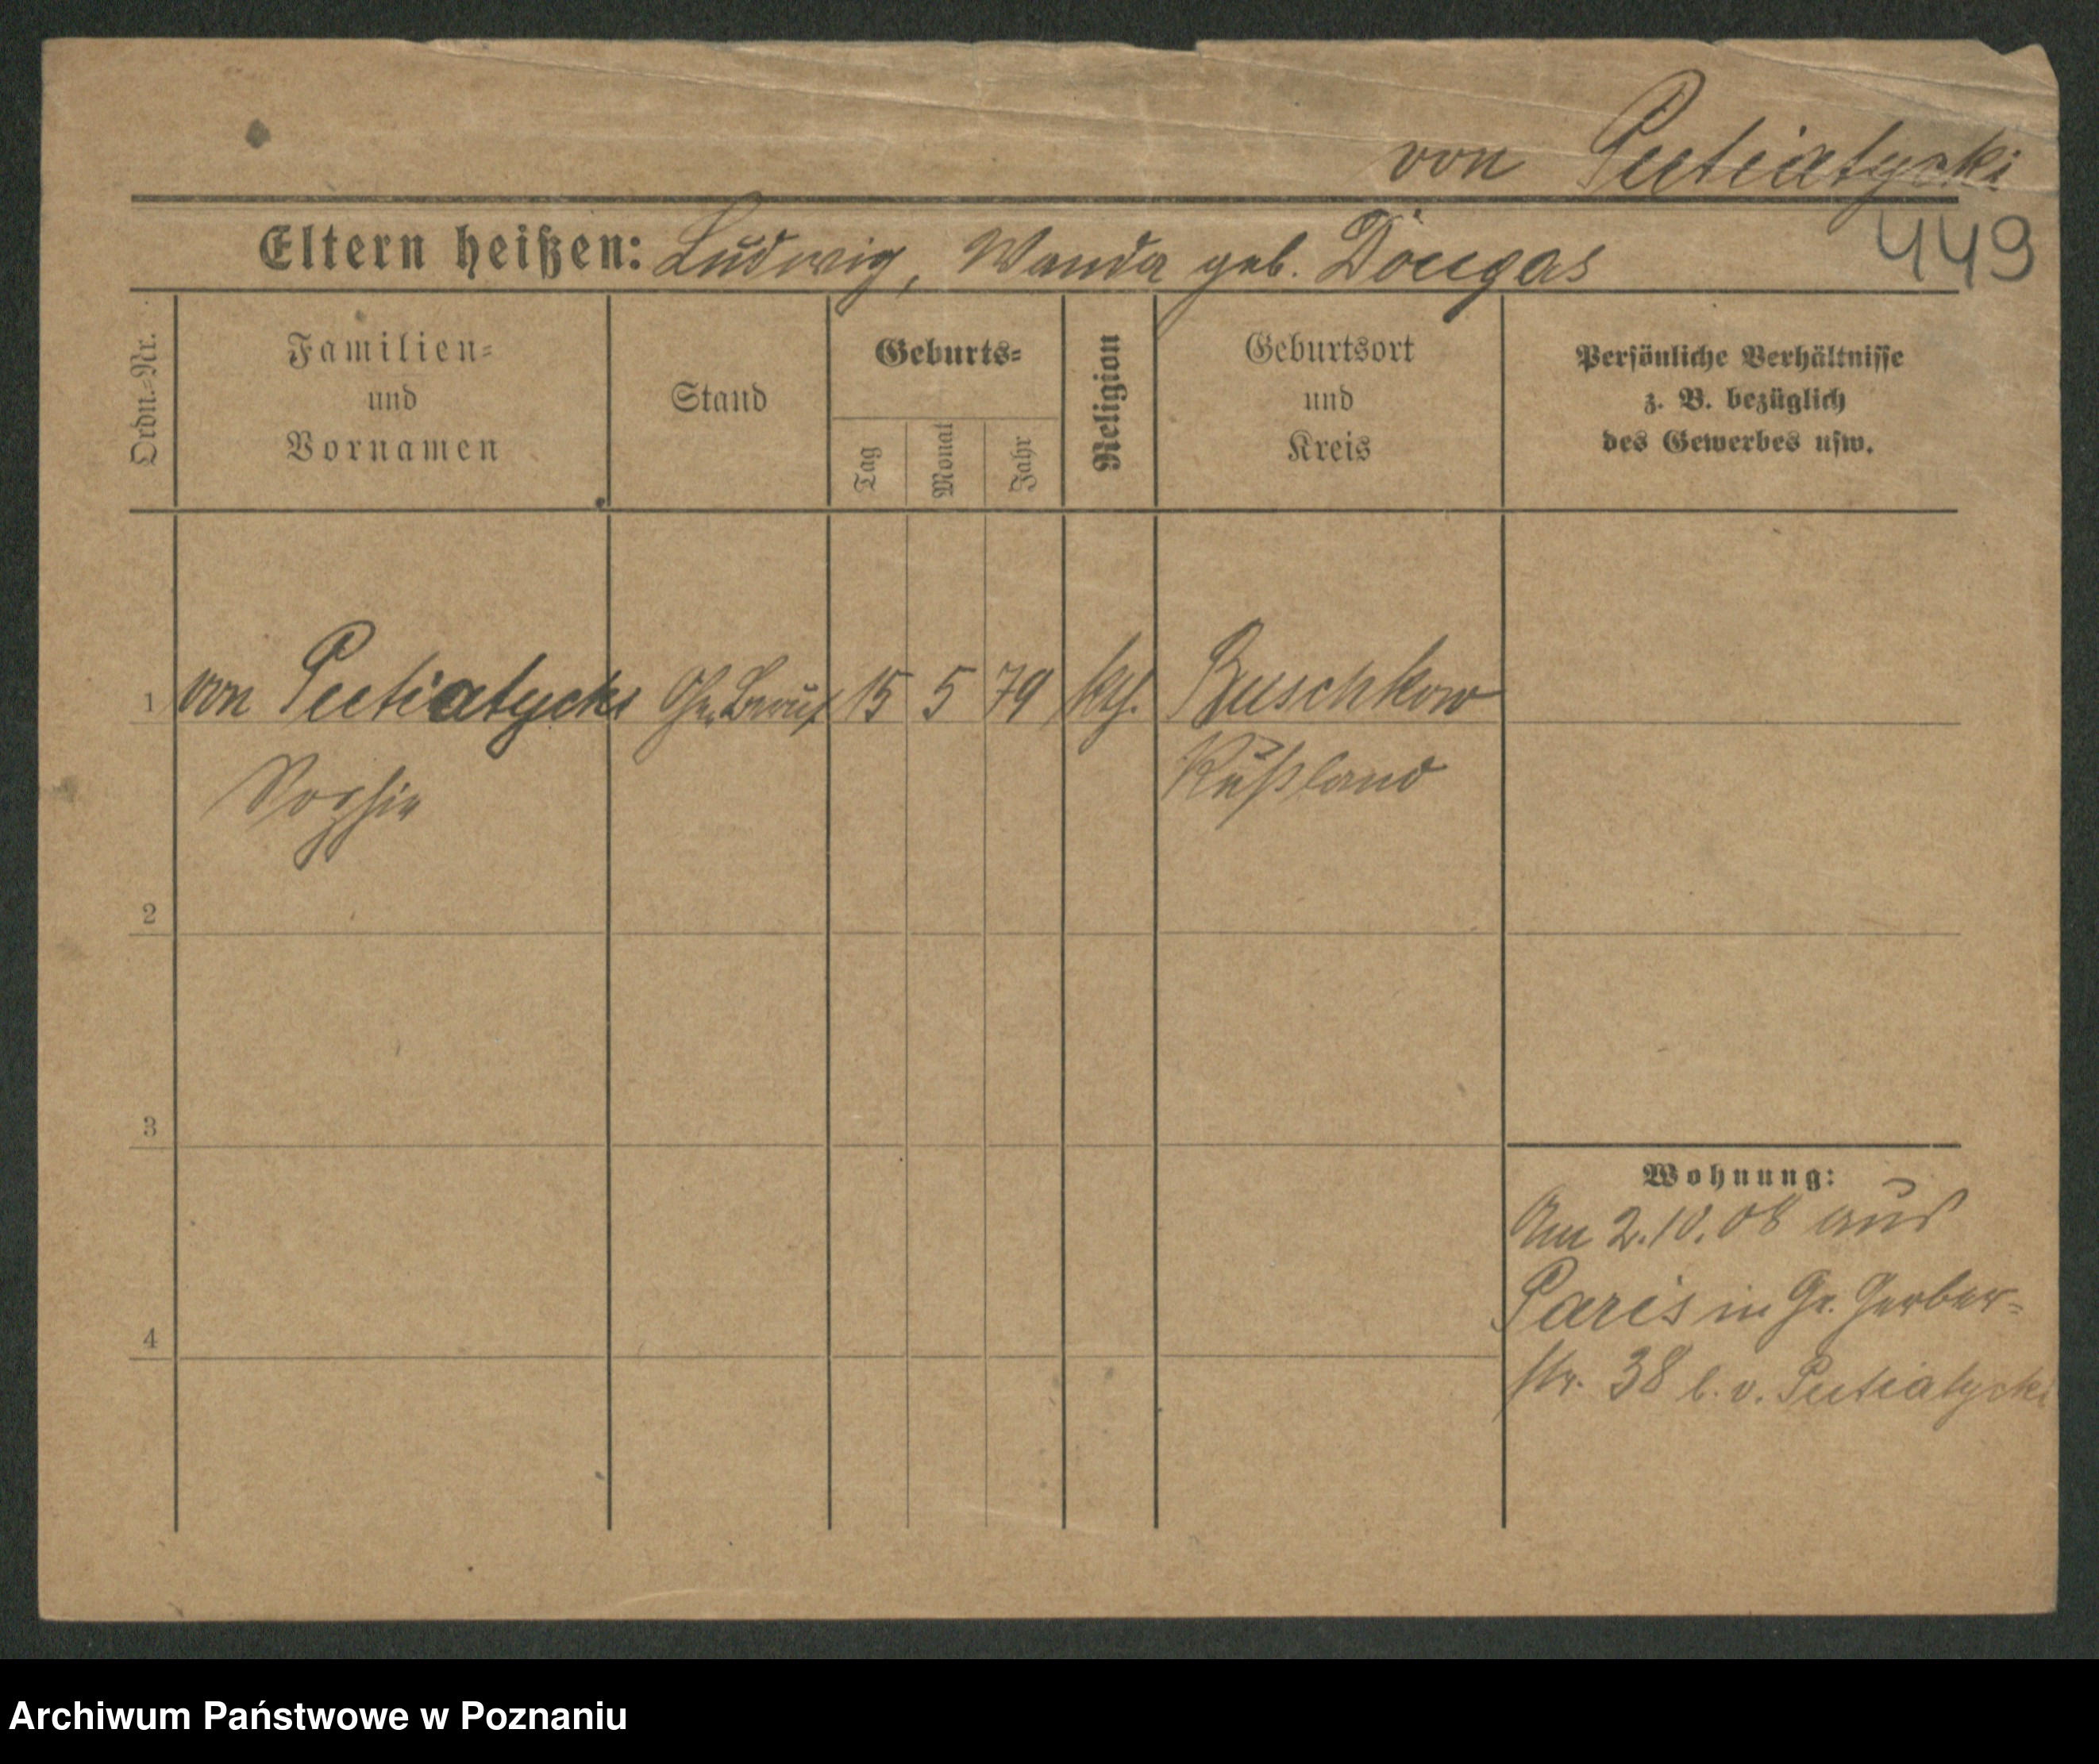 von Putiatycki
449
Eltern heißen: Ludwig, Wanda geb. Dougas
Ordn.-Nr.
Familien-
und
Vornamen
Stand
Geburts-
Tag
Monat
Jahr
Religion
Geburtsort
und
Kreis
Persönliche Verhältnisse
z. B. bezüglich
des Gewerbes usw.
1 von Putiatycki Oh. Beruf 15 5 79 kth. Buschkow
Sophie Rußland
2
3
Wohnung:
Am 2.10.08 aus
Paris in Gr. Gerber-
4
str. 38 b. v. Putiatycki
Archiwum Państwowe w Poznaniu